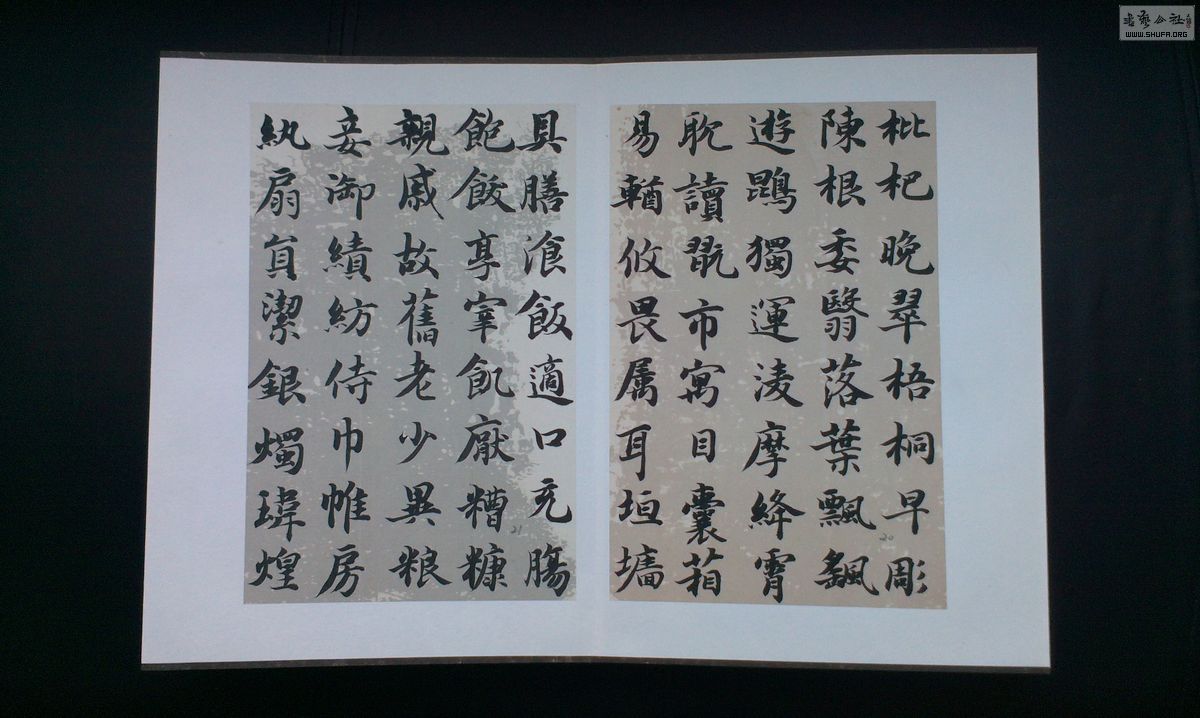 枇杷晚翠梧桐早彫
陳根委翳落葉飄颻
遊鵾獨運淩摩絳霄
耽讀翫市寓目囊箱
易輶攸畏属耳垣墻
具膳飡飯適口充腸
飽飫享宰飢厭糟糠
親戚故舊老少異粮
妾御績紡侍巾帷房
紈扇員潔銀燭瑋煌
20
21
书艺公社
WWW.SHUFA.ORG